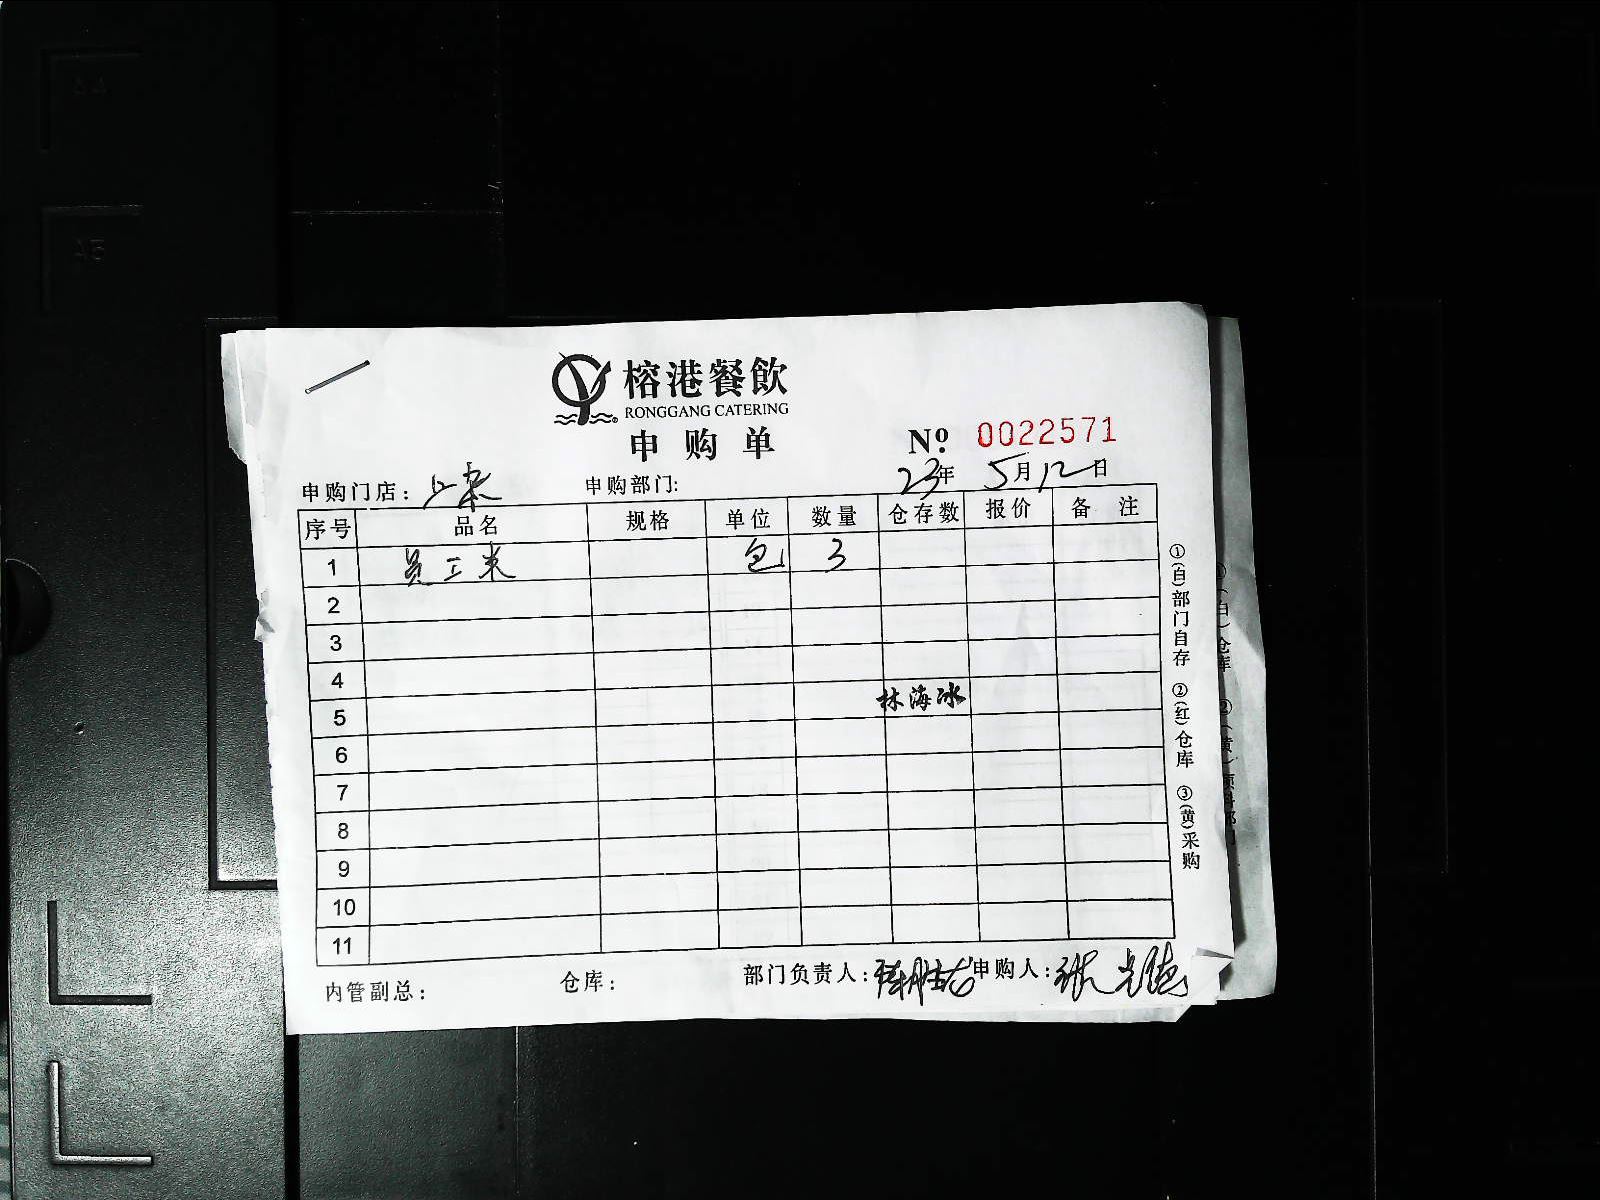 榕港餐飲
RONGGANG CATERING
申购单
Nº 0022571
申购门店： 申购部门: 23年 5月12日
序号 品名 规格 单位 数量 仓存数 报价 备 注
1 员工米 包 3
2
3
4
林海冰
5
6
7
8
9
10
11
内管副总： 仓库： 部门负责人： 申购人：张光德
①(白)部门自存 ②(红)仓库 ③(黄)采购